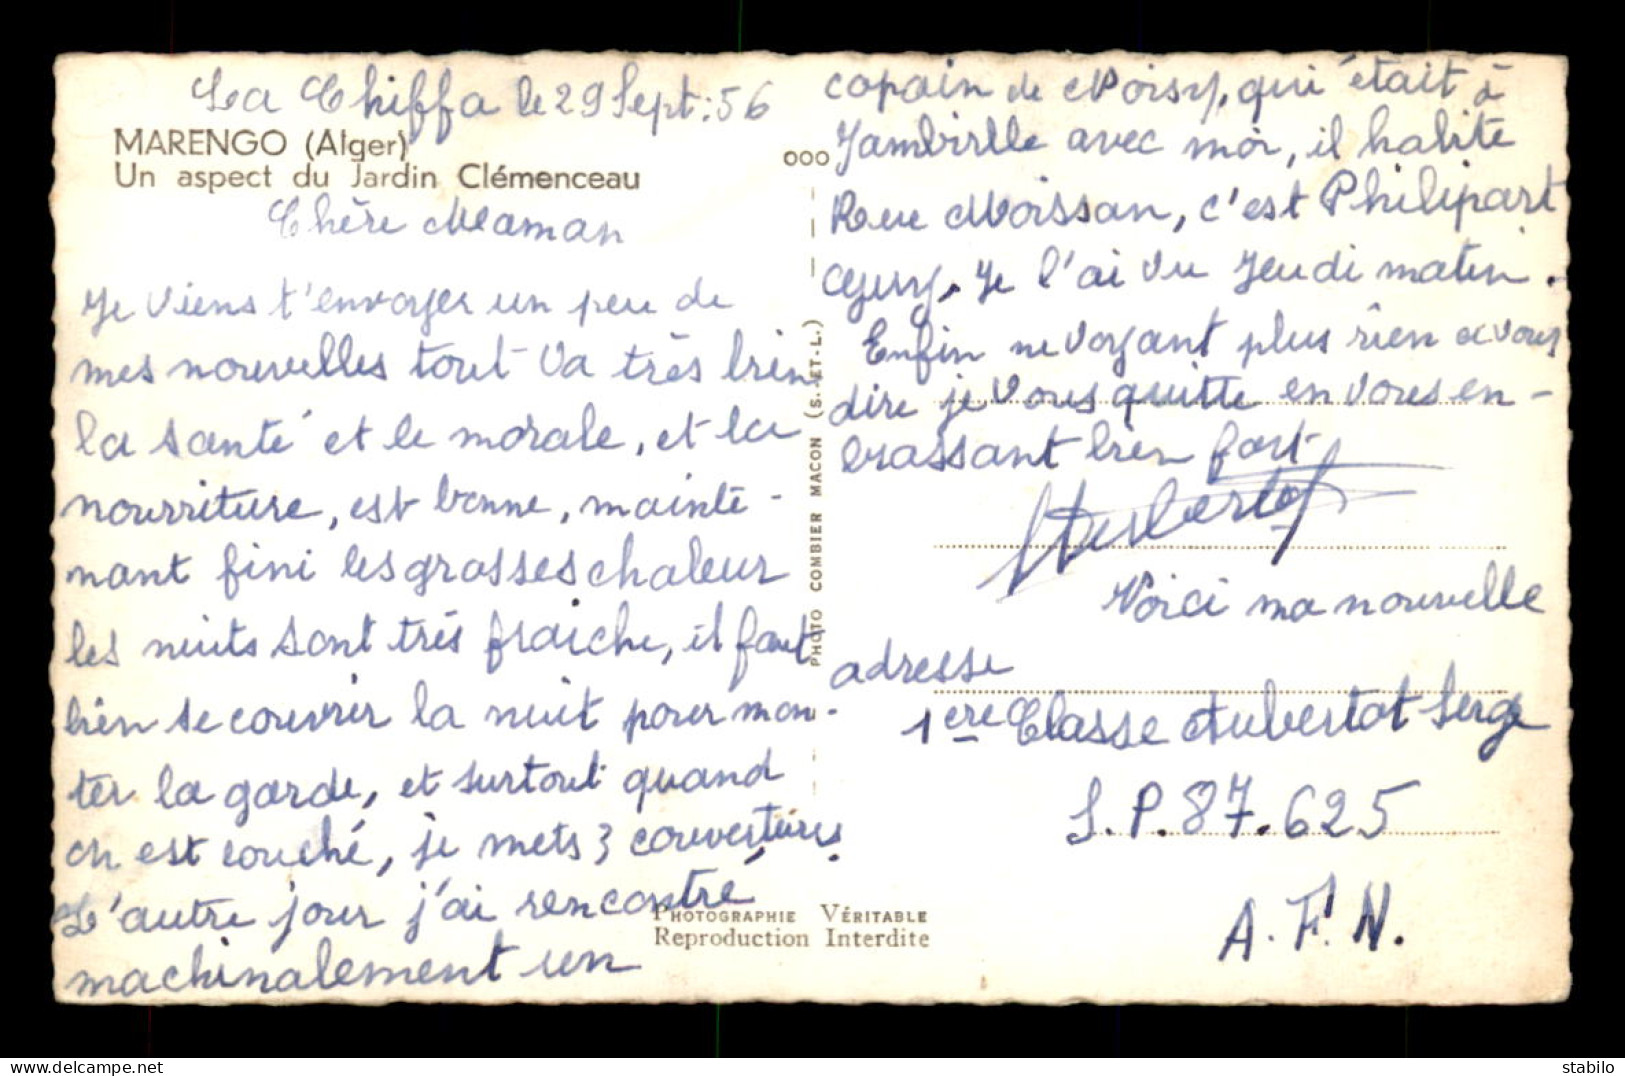 La Chiffa le 29 Sept: 56
MARENGO (Alger)
Un aspect du Jardin Clémenceau
Chère Maman
Je viens t'envoyer un peu de
mes nouvelles tout va très bien
la santé et le morale, et la
nourriture, est bonne, mainte-
nant fini les grasses chaleur
les nuits sont très fraiche, il faut
bien se couvrir la nuit pour mon-
ter la garde, et surtout quand
on est couché, je mets 3 couvertures.
L'autre jour j'ai rencontré
machinalement un
copain de Noisy, qui était à
Jambville avec moi, il habite
Rue Moissan, c'est Philipart
Guy, Je l'ai vu Jeudi matin.
Enfin ne voyant plus rien a vous
dire je vous quitte en vous en-
brassant bien fort
Aubertot
Voici ma nouvelle
adresse
1ère Classe Aubertot Serge
S.P. 87.625
A.F.N.
000
PHOTO COMBIER MACON (S.-ET-L.)
PHOTOGRAPHIE VÉRITABLE
Reproduction Interdite
stabylo - www.delcampe.net